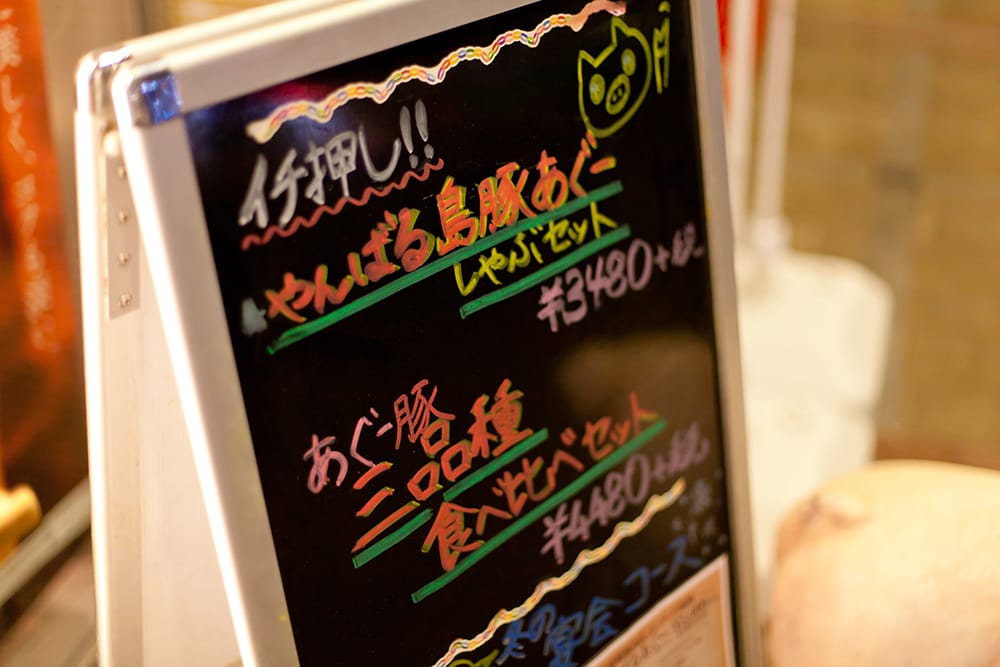 イチ押し!!
やんばる島豚あぐー
しゃぶセット
¥3480+税
あぐー豚
三品種
食べ比べセット
¥4480+税
冬の宴会コース